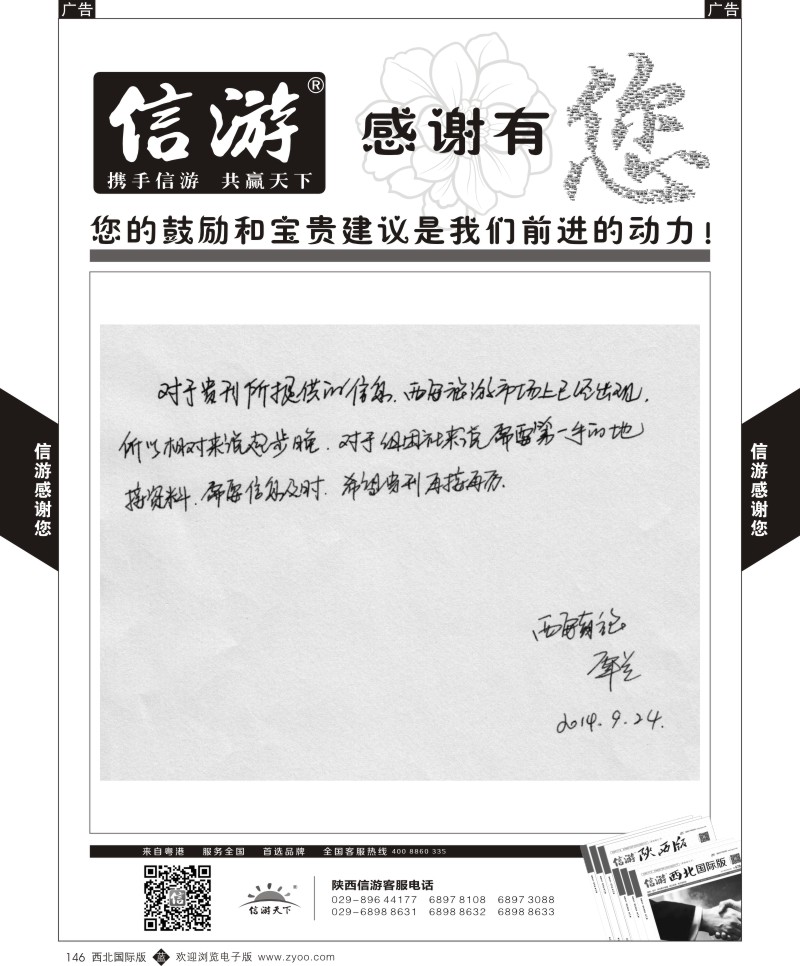 广告
广告
信游®
携手信游 共赢天下
感谢有
您
您的鼓励和宝贵建议是我们前进的动力!
对于贵刊所提供的信息、西安旅游市场上已经出现,
所以相对来说起步晚、对于组团社来说需要第一手的地
接资料、需要信息及时、希望贵刊再接再厉.
2014.9.24.
信游感谢您
信游感谢您
来自粤港 服务全国 首选品牌 全国客服热线 400 8860 335
信
信游天下
陕西信游客服电话
029-896 44177 6897 8108 6897 3088
029-6898 8631 6898 8632 6898 8633
信游 陕西版
信游 西北国际版
146 西北国际版 蓝 欢迎浏览电子版 www.zyoo.com